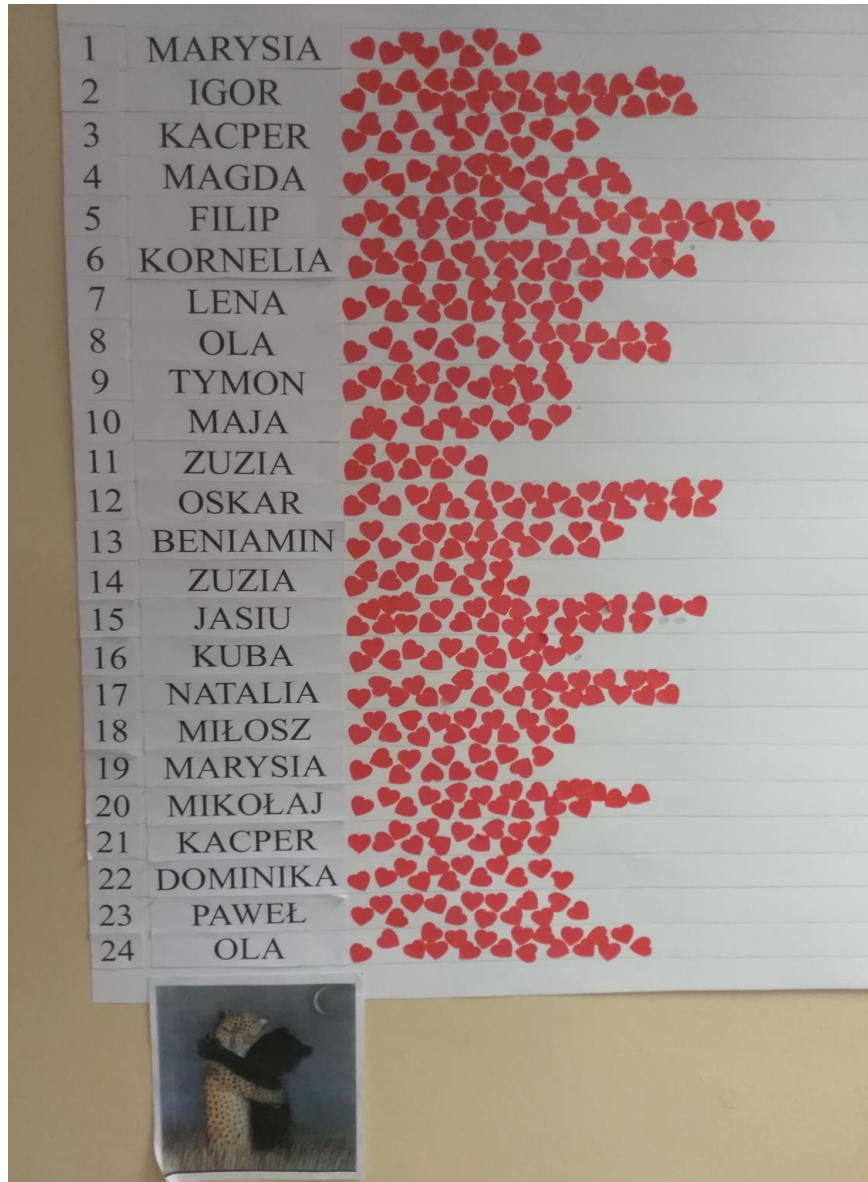 1 MARYSIA
2 IGOR
3 KACPER
4 MAGDA
5 FILIP
6 KORNELIA
7 LENA
8 OLA
9 TYMON
10 MAJA
11 ZUZIA
12 OSKAR
13 BENIAMIN
14 ZUZIA
15 JASIU
16 KUBA
17 NATALIA
18 MIŁOSZ
19 MARYSIA
20 MIKOŁAJ
21 KACPER
22 DOMINIKA
23 PAWEŁ
24 OLA